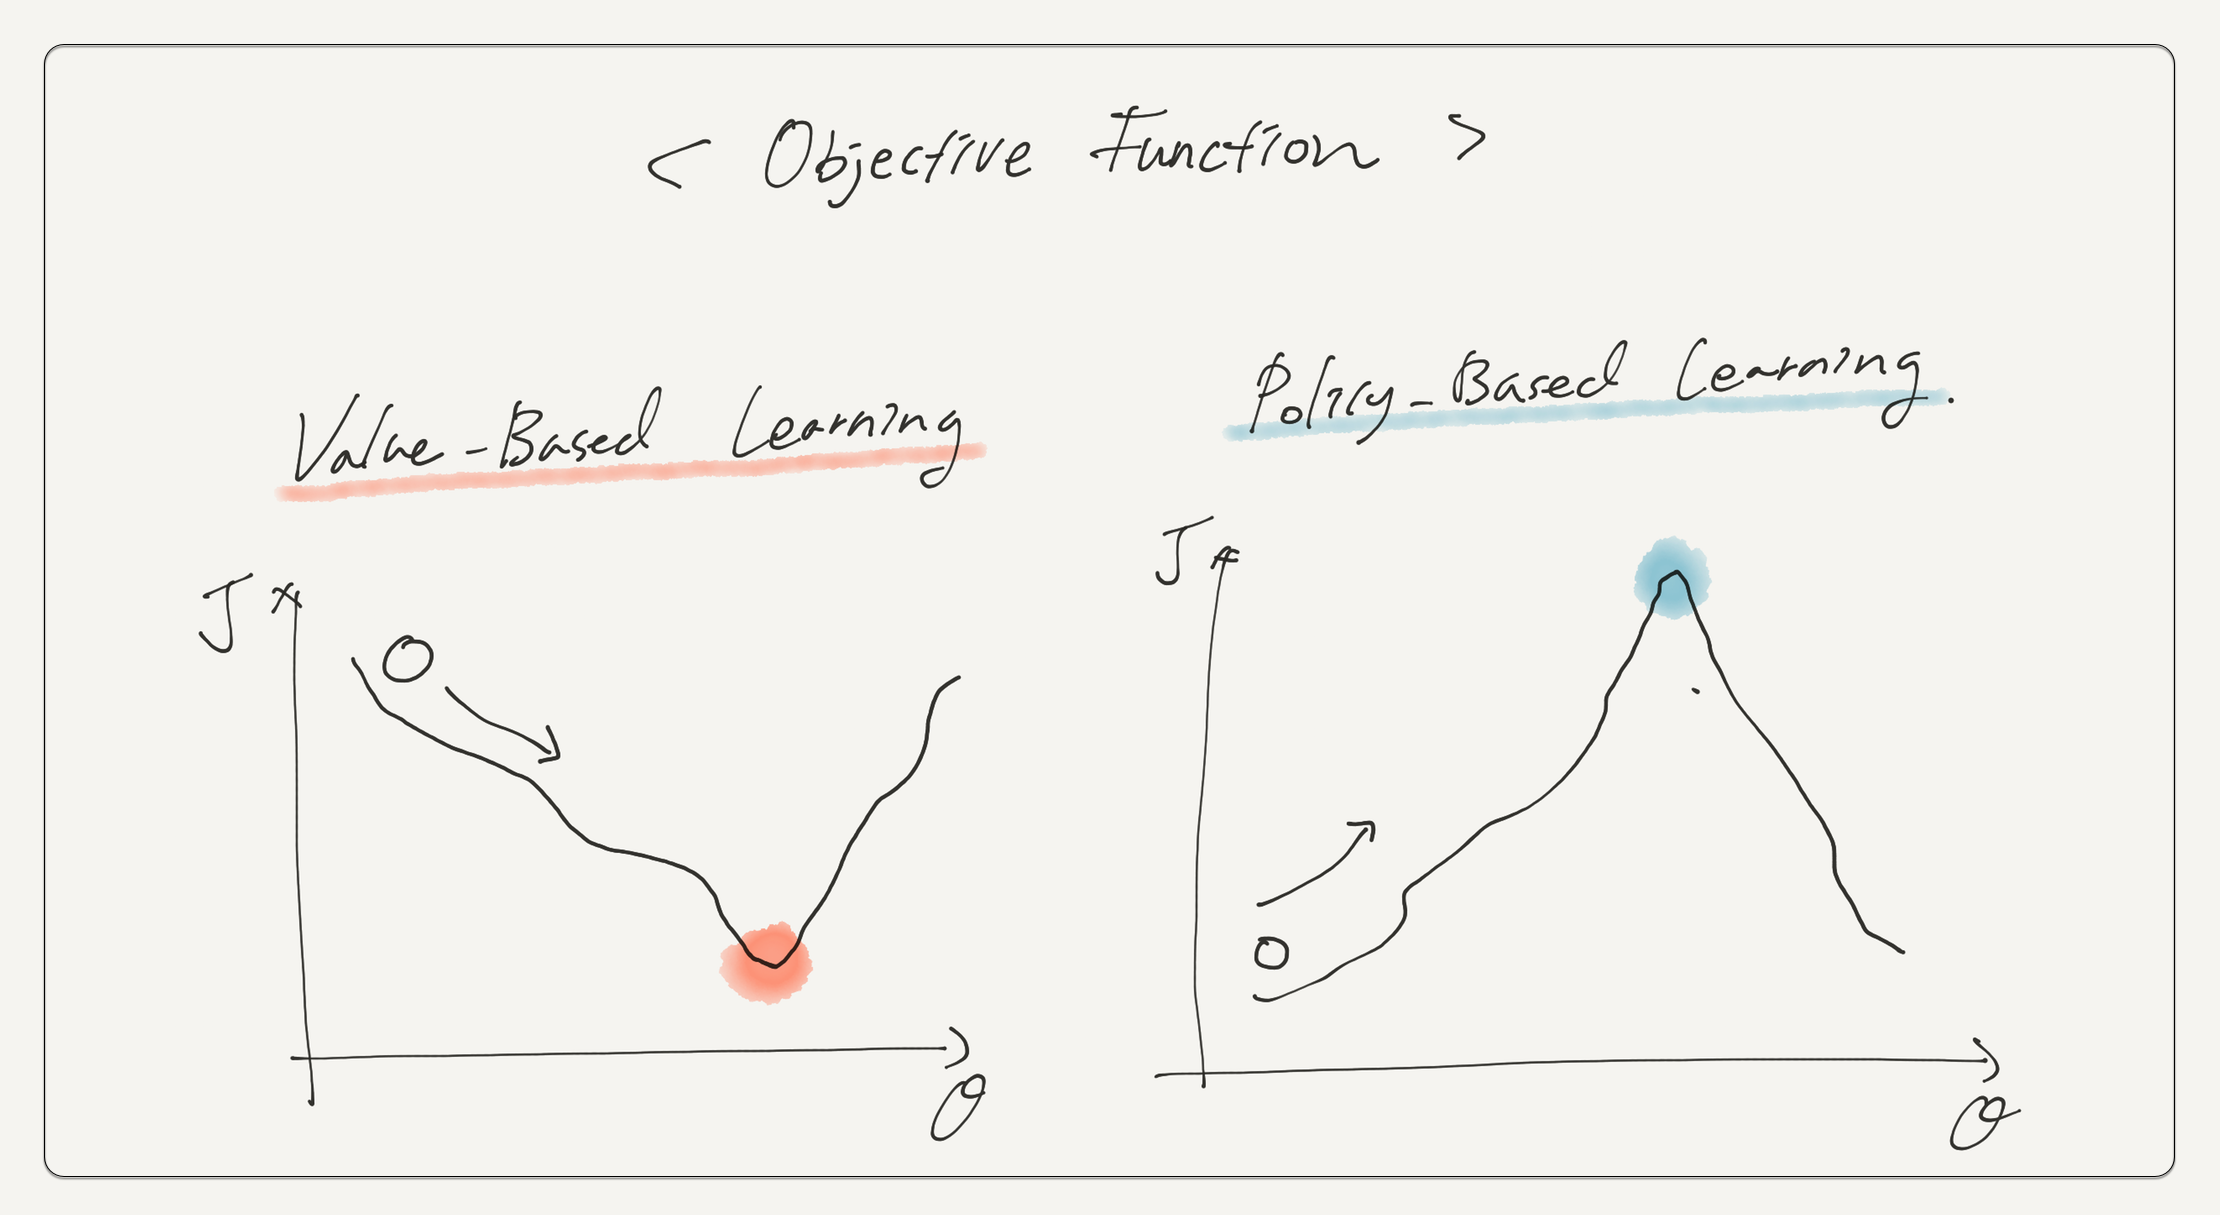 < Objective Function >
Value-Based Learning
Policy-Based Learning.
J
J
θ
θ